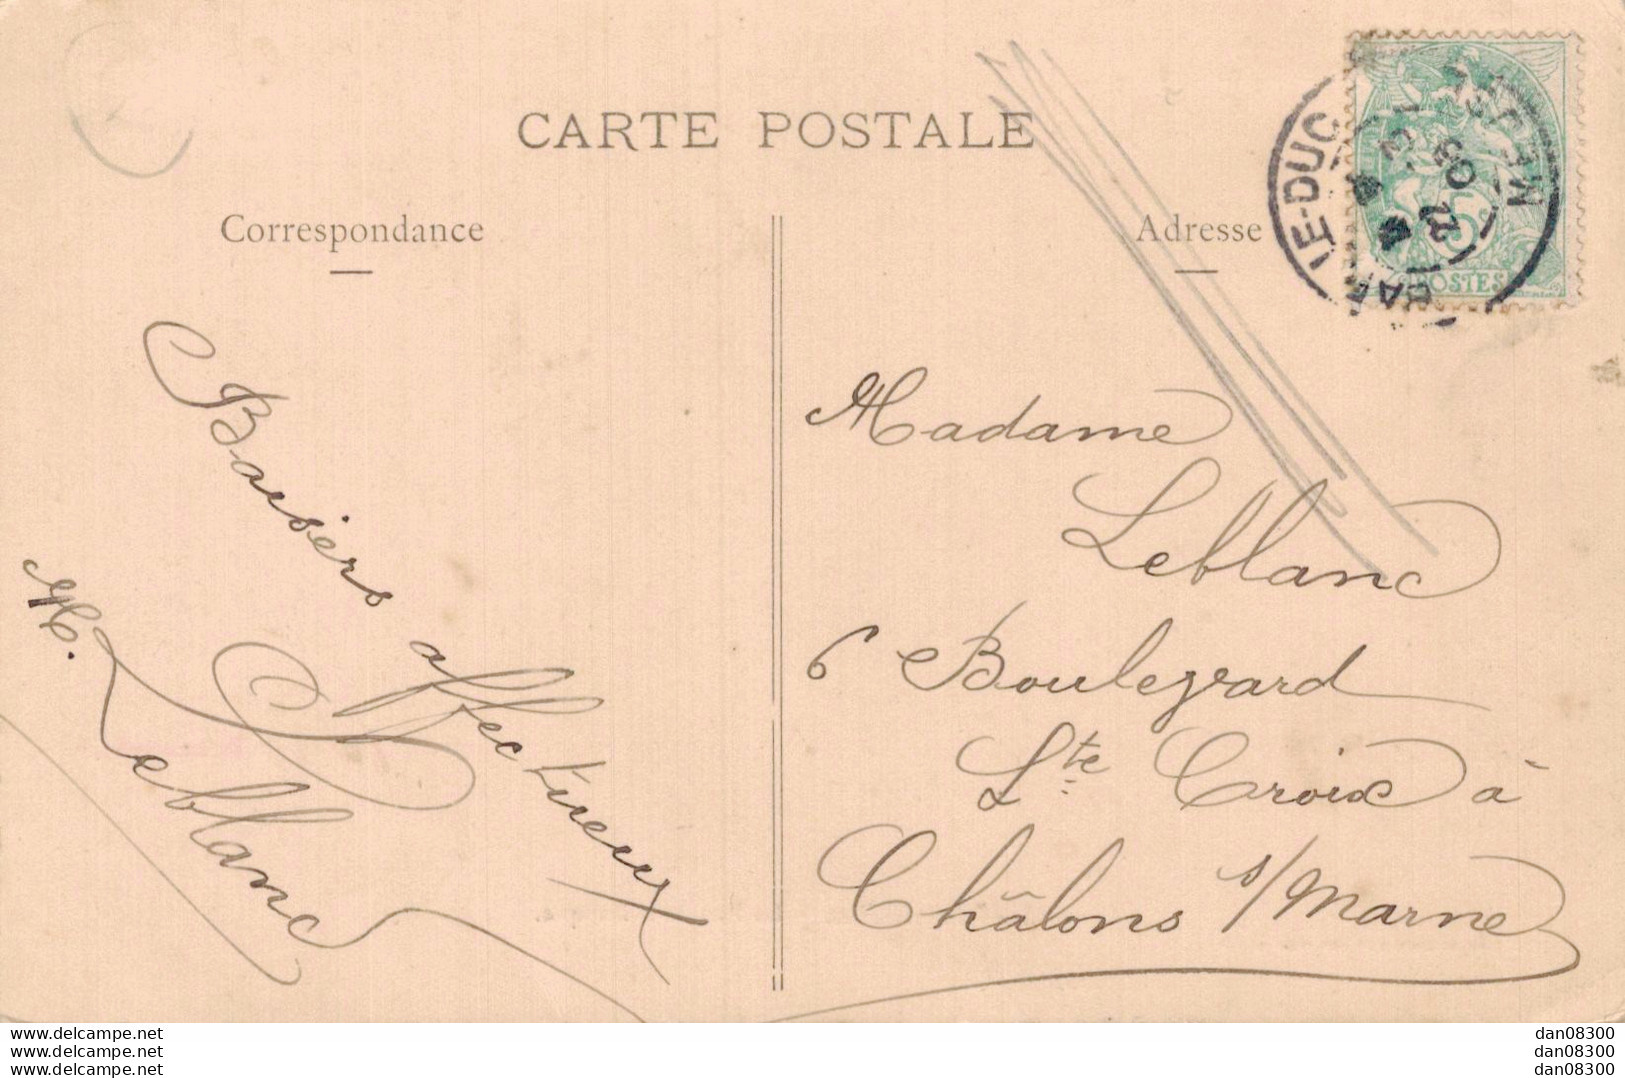 CARTE POSTALE
Correspondance
Adresse
BAR-LE-DUC
MEUSE
5c
POSTES
Baisers affectueux
M. Leblanc
Madame
Leblanc
6 Boulevard
Ste Croix à
Châlons s/Marne
www.delcampe.net
www.delcampe.net
www.delcampe.net
dan08300
dan08300
dan08300